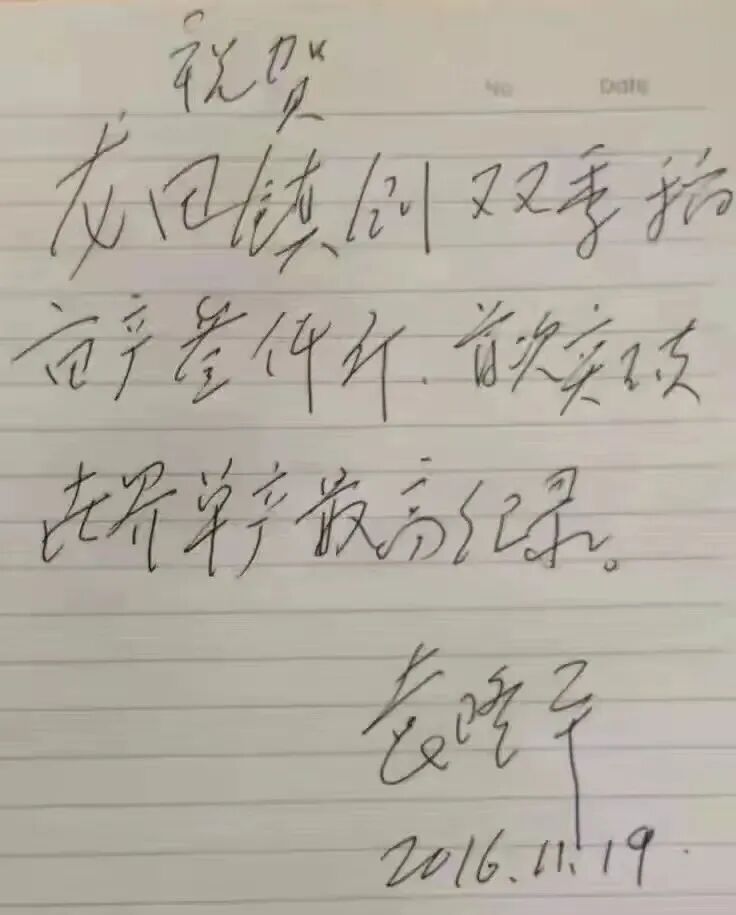 祝贺
No Date
龙田镇创双季稻
亩产叁仟斤.首次突破
世界单产最高纪录。
袁隆平
2016.11.19.